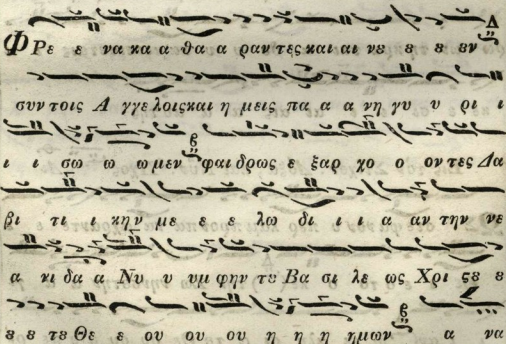 ΦΡε ε να κα α θα α ραν τες και αι νε ε ε ε εν
συν τοις Α γγε λοις και η μεις πα α α νη γυ υ ρι ι
ι ι σω ω ω μεν φαι δρως ε ξαρ χο ο ον τες Δα
βι τι ι κην με ε ε λω δι ι ι α αν την νε
α νι δα α Νυ υ υμ φην τȣ Βα σι λε ως Χρι ςȣ ȣ
ȣ ȣ τȣ Θε ε ου ου ου η η η ημων α να